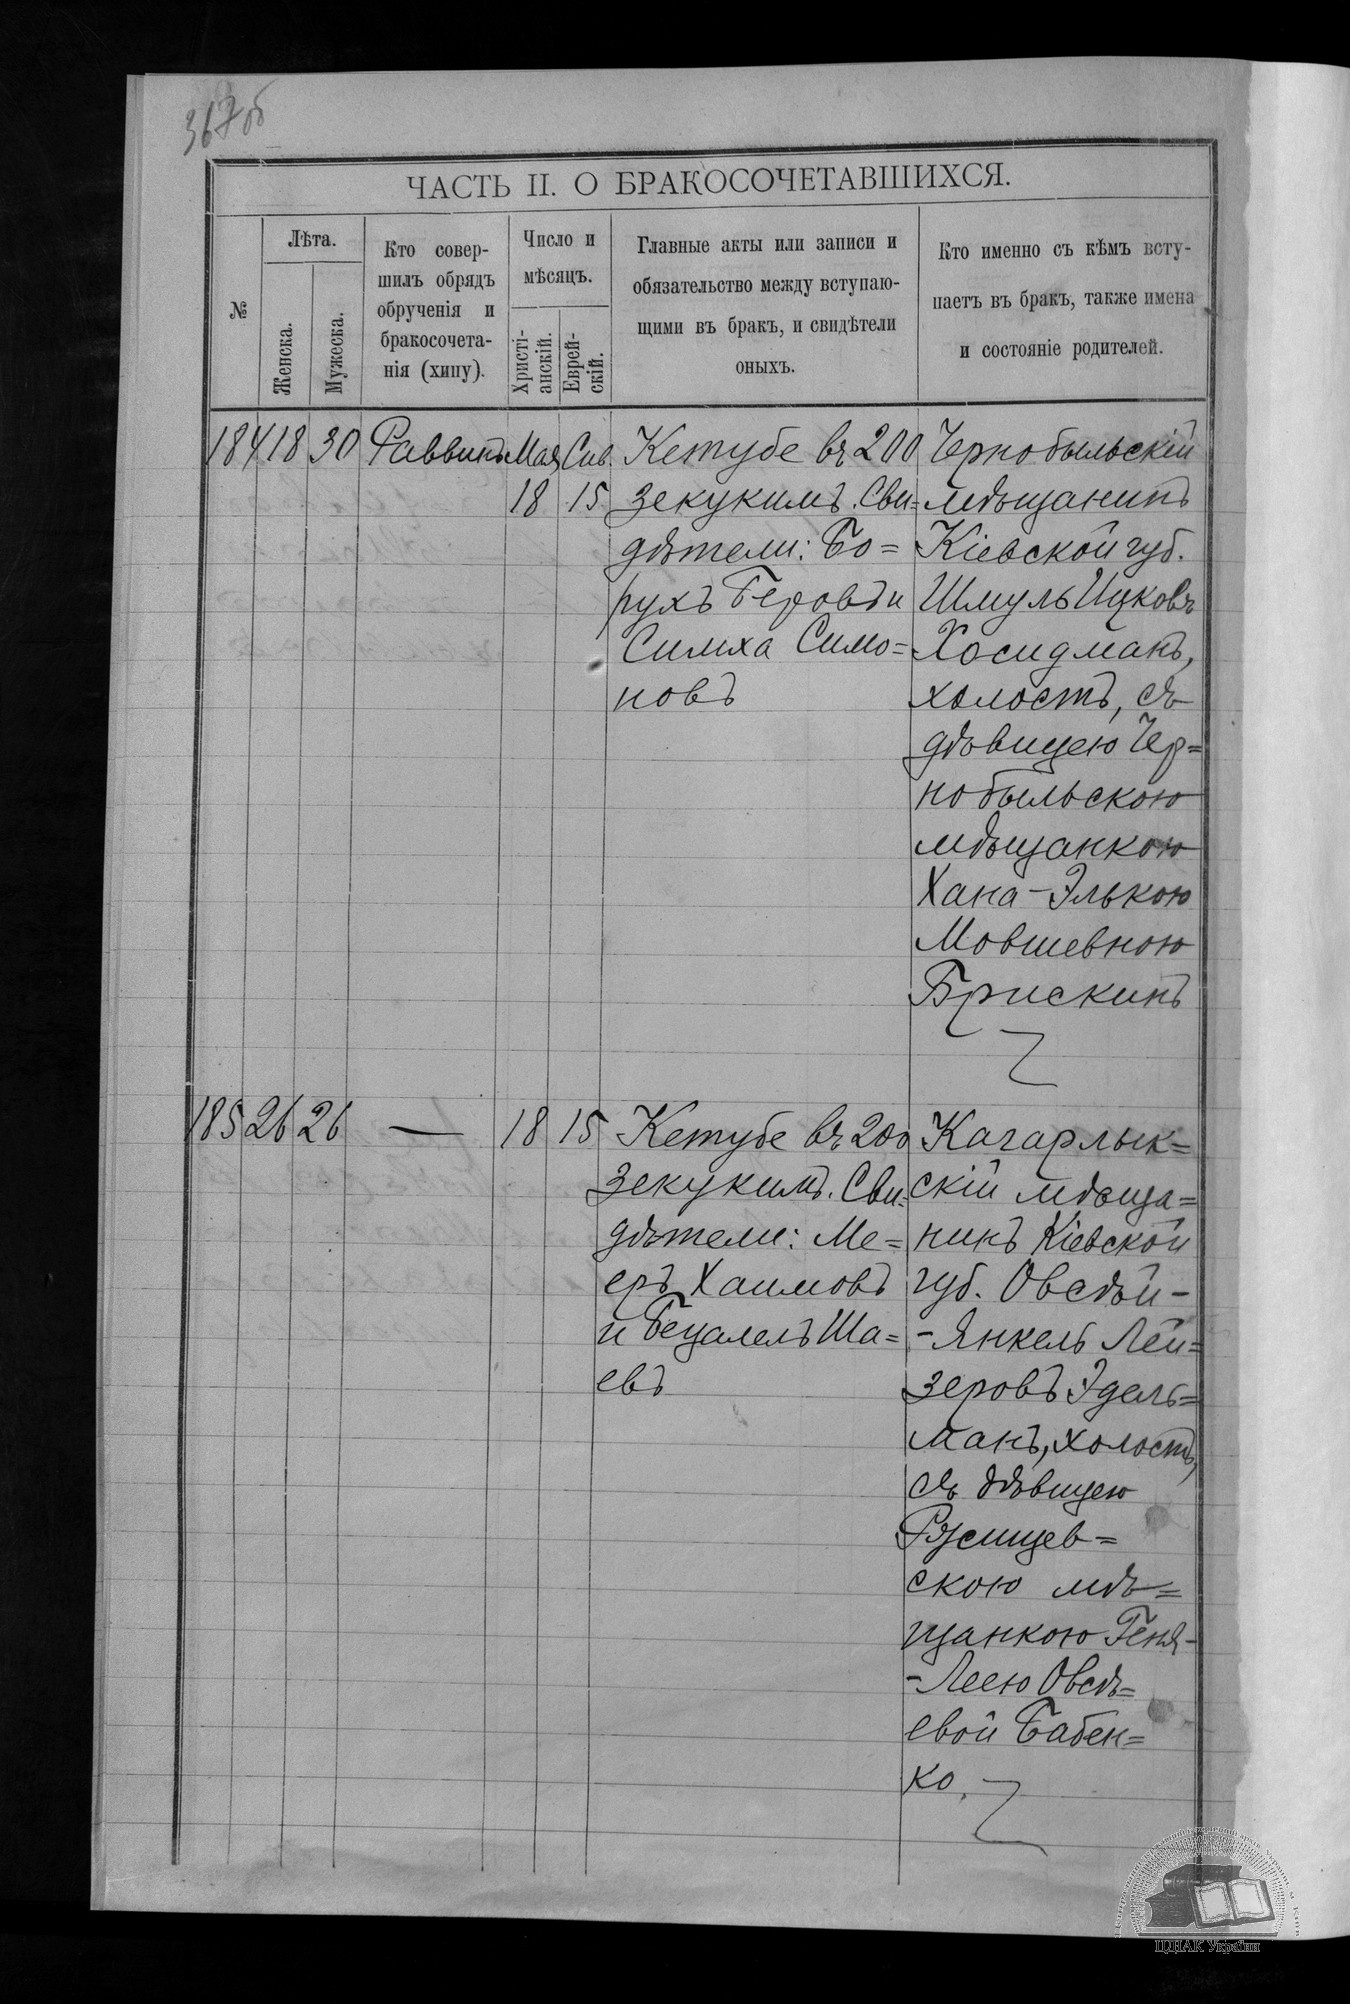 367об
ЧАСТЬ II. О БРАКОСОЧЕТАВШИХСЯ.
№
Лѣта.
Женска.
Мужеска.
Кто совер-
шилъ обрядъ
обрученія и
бракосочета-
нія (хипу).
Число и
мѣсяцъ.
Христі-
анскій.
Еврей-
скій.
Главные акты или записи и
обязательство между вступаю-
щими въ бракъ, и свидѣтели
оныхъ.
Кто именно съ кѣмъ всту-
паетъ въ бракъ, также имена
и состояніе родителей.
184 18 30 Раввинъ Мая Сив.
18 15
Кетубе въ 200
зекукимъ. Сви=
дѣтели: Бо=
рухъ Беровъ и
Симха Симо=
новъ
Чернобыльскій
мѣщанинъ
Кіевской губ.
Шмуль Ицковъ
Хосидманъ,
холостъ, съ
дѣвицею Чер=
нобыльскою
мѣщанкою
Хана-Элькою
Мовшевною
Брискинъ
185 26 26 — 18 15
Кетубе въ 200
зекукимъ. Сви=
дѣтели: Ме=
еръ Хаимовъ
и Бецалелъ Ша=
евъ
Кагарлык=
скій мѣща=
нинъ Кіевской
губ. Овсѣй-
-Янкель Лей=
зеровъ Эдель=
манъ, холостъ,
съ дѣвицею
Ржищев=
скою мѣ=
щанкою Геня-
-Леею Овсѣ=
евой Бабен=
ко.
ЦДІАК України